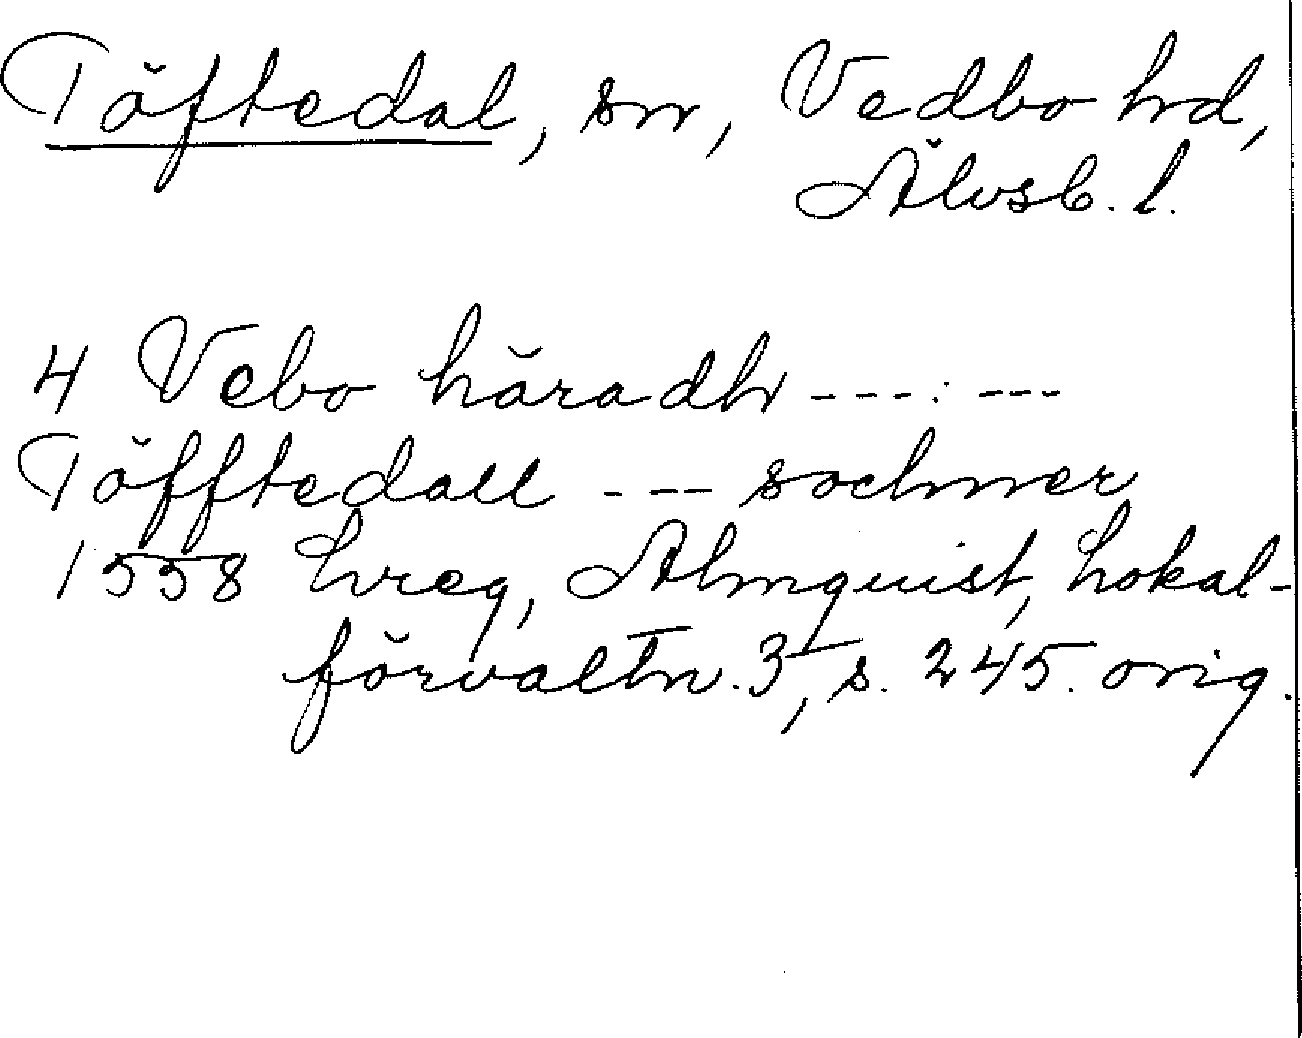 Töftedal, sn, Vedbo hd,
Älvsb. l.
4 Vebo häradh ---.---
Töfftedall --- sochner
1558 hreg, Almquist, Lokal-
förvaltn. 3, s. 245. orig.